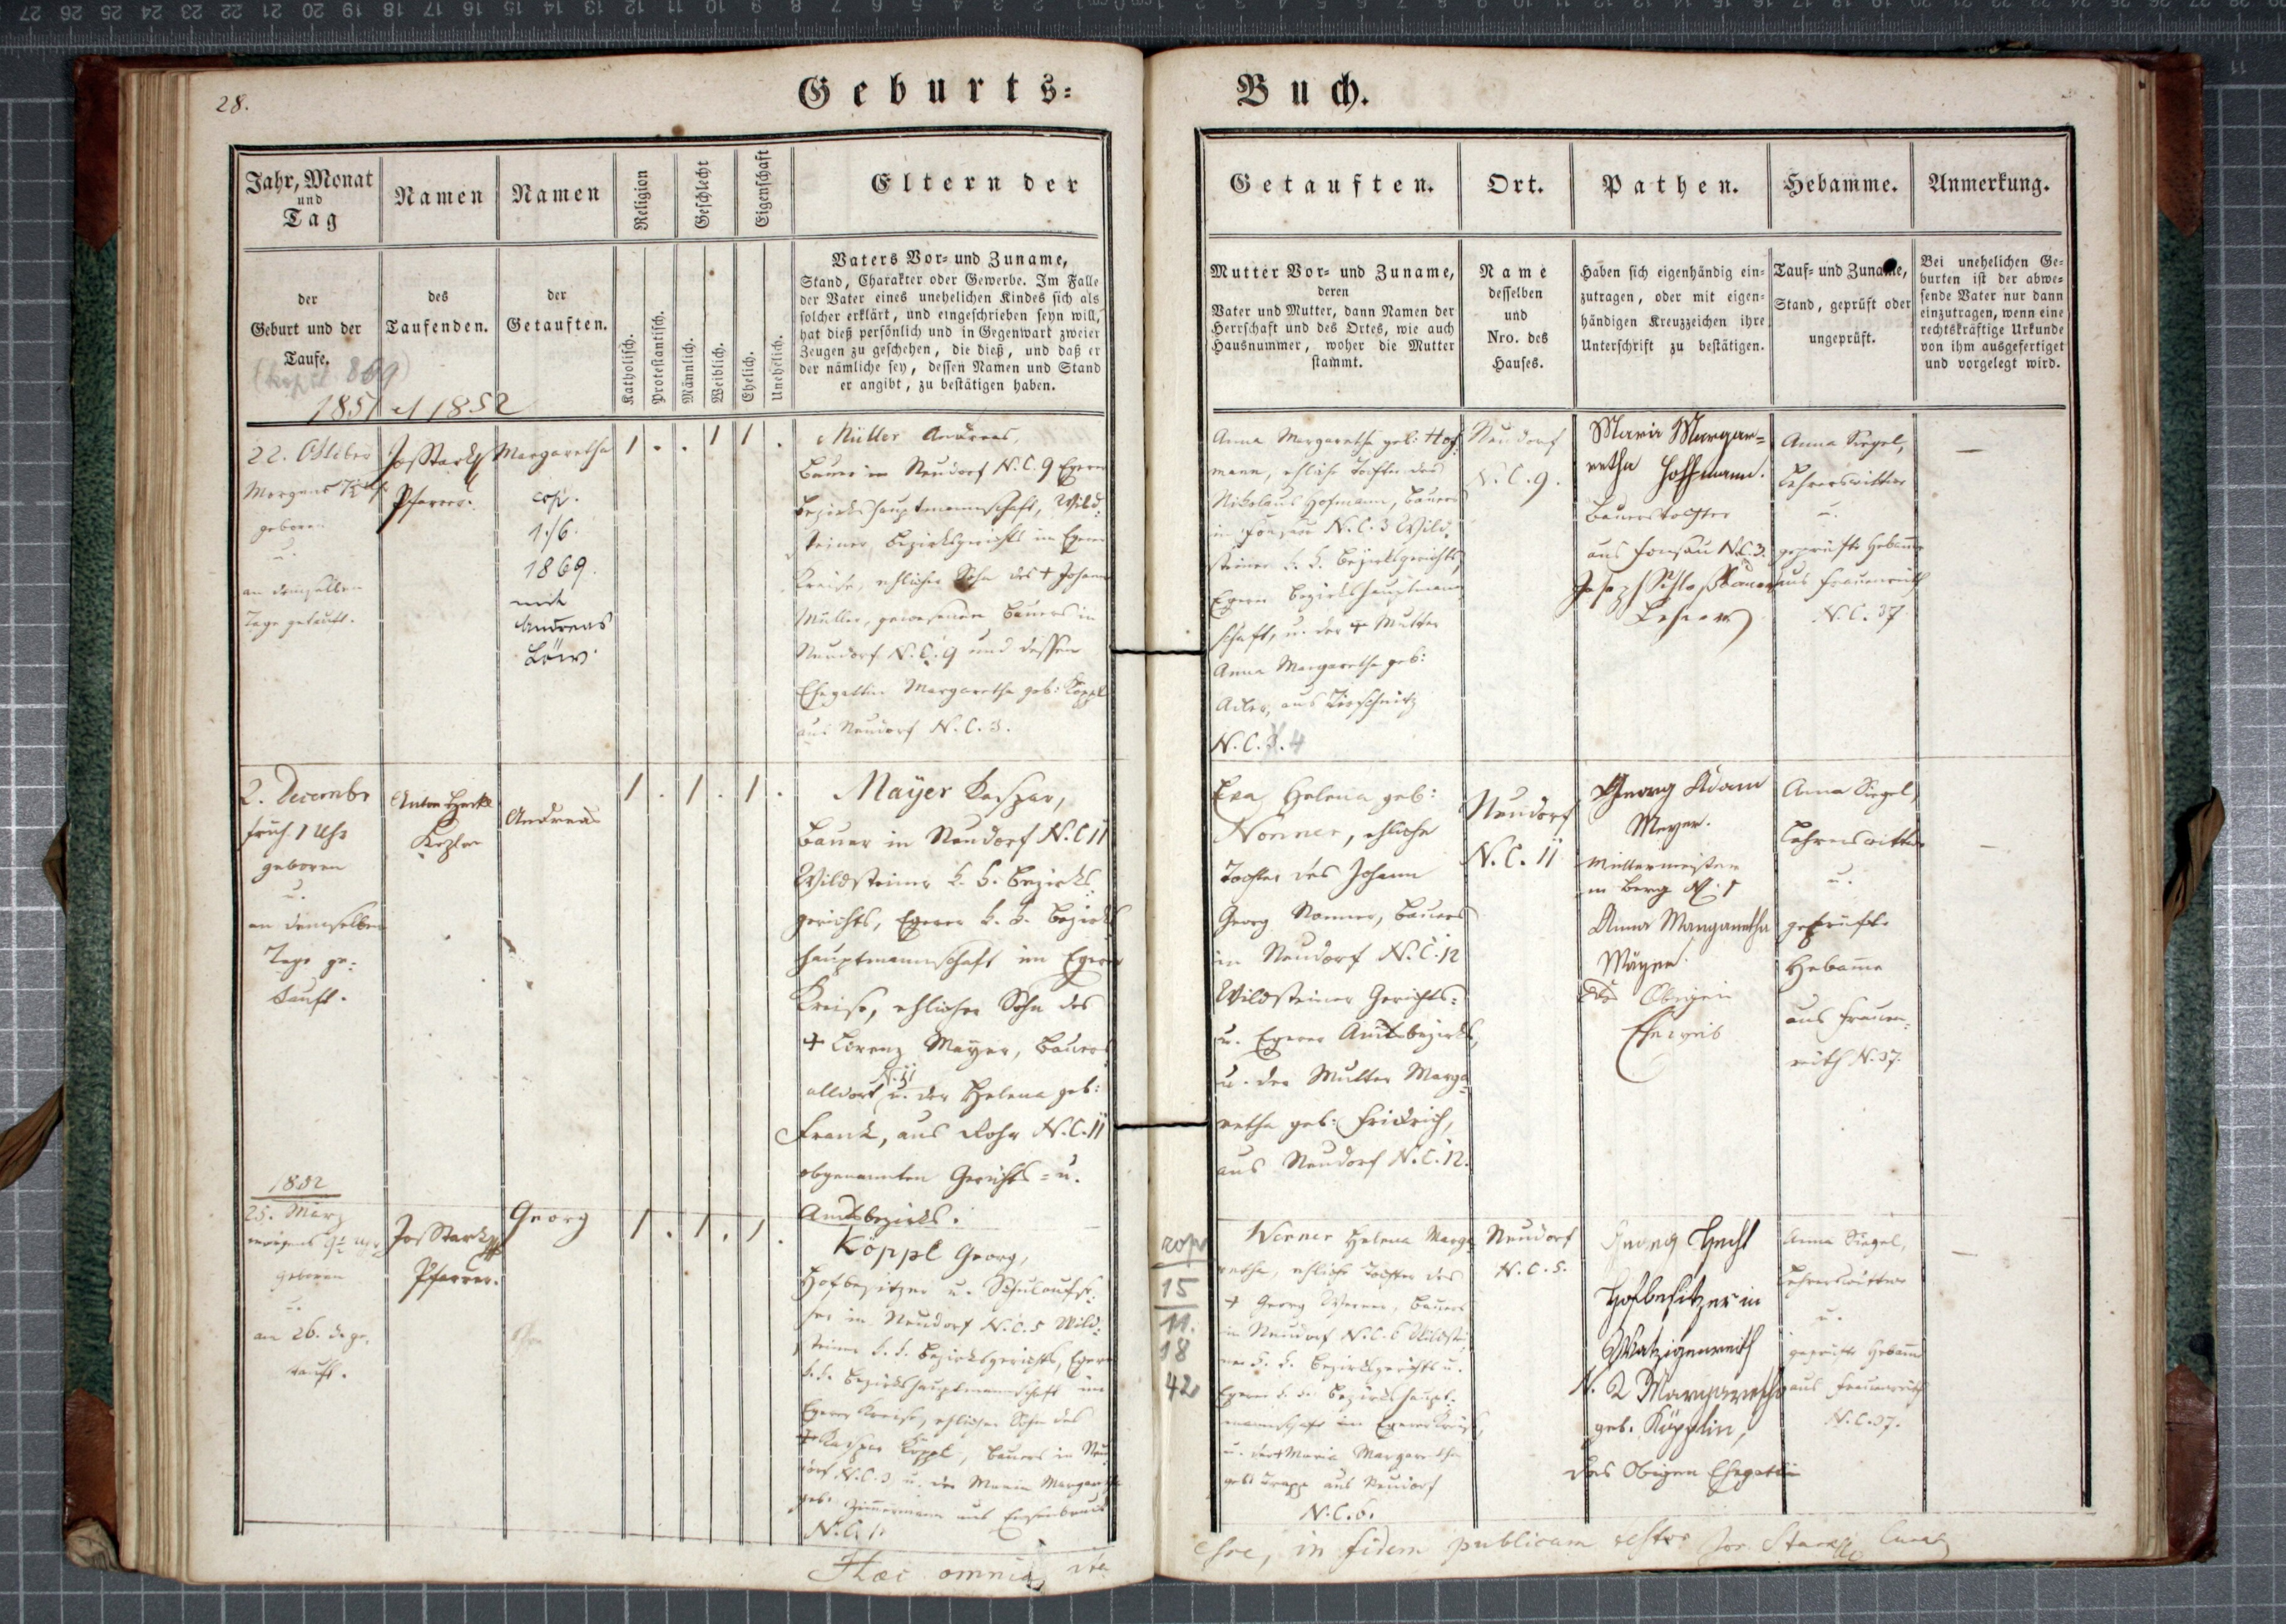 28.
Geburts=
Buch.
Jahr, Monat
und
Tag
Namen
Namen
Religion
Geschlecht
Eigenschaft
Eltern der
der
Geburt und der
Taufe.
des
Taufenden.
der
Getauften.
Katholisch.
Protestantisch.
Männlich.
Weiblich.
Ehelich.
Unehelich.
Vaters Vor= und Zuname,
Stand, Charakter oder Gewerbe. Im Falle
der Vater eines unehelichen Kindes sich als
solcher erklärt, und eingeschrieben seyn will,
hat dieß persönlich und in Gegenwart zweier
Zeugen zu geschehen, die dieß, und daß er
der nämliche sey, dessen Namen und Stand
er angibt, zu bestätigen haben.
Getauften.
Ort.
Pathen.
Hebamme.
Anmerkung.
Mutter Vor= und Zuname,
deren
Vater und Mutter, dann Namen der
Herrschaft und des Ortes, wie auch
Hausnummer, woher die Mutter
stammt.
Name
desselben
und
Nro. des
Hauses.
Haben sich eigenhändig ein=
zutragen, oder mit eigen=
händigen Kreuzzeichen ihre
Unterschrift zu bestätigen.
Tauf= und Zuname,
Stand, geprüft oder
ungeprüft.
Bei unehelichen Ge=
burten ist der abwe=
sende Vater nur dann
einzutragen, wenn eine
rechtskräftige Urkunde
von ihm ausgefertiget
und vorgelegt wird.
1851 et 1852
22. October
Morgens 7½ Uhr
geboren
u.
an demselben
Tage getauft.
Jos Stark
Pfarrer.
Margaretha
cop.
1./6.
1869.
mit
Andreas
Löw.
1 . . 1 1 .
Müller Andreas,
Bauer in Neudorf N.C. 9 Egerer
Bezirkshauptmannschaft, Wild=
steiner Bezirksgerichts im Egerer
Kreise, ehlicher Sohn des + Johann
Müller, gewesenen Bauers in
Neudorf N.C. 9 und dessen
Ehegattin Margaretha geb: Köppl
aus Neudorf N.C. 3.
Anna Margaretha geb. Hof=
mann, ehliche Tochter des
Nikolaus Hofmann, Bauers
in Fonsau N.C. 3 Wild=
steiner k. k. Bezirksgerichts,
Egerer Bezirkshauptmann=
schaft, u. der + Mutter
Anna Margaretha geb:
Adler, aus Tirschnitz
N.C. 4
Neudorf
N.C. 9.
Maria Margar=
retha Hoffmann.
Bauerstochter
aus Fonsau N.C. 3.
Joseph Schloßbauer
Lehrer
Anna Siegel,
Lehrerswittwe
u.
geprüfte Hebamme
aus Frauenreuth
N.C. 37.
—
2. December
früh 1 Uhr
geboren
u.
an demselben
Tage ge=
tauft.
Anton
Kaplan
Andreas
1 . 1 . 1 .
Mayer Kaspar,
Bauer in Neudorf N.C. 11
Wildsteiner k. k. Bezirks=
gerichts, Egerer k. k. Bezirks
hauptmannschaft im Egerer
Kreise, ehlicher Sohn des
+ Lorenz Mayer, Bauers
alldort N. 11 u. der Helena geb:
Frank, aus Rohr N.C. 11
obgenannten Gerichts= u.
Amtsbezirks.
Eva Helena geb:
Nonner, ehliche
Tochter des Johann
Georg Nonner, Bauers
in Neudorf N.C. 12
Wildsteiner Gerichts=
u. Egerer Amtsbezirks,
u. der Mutter Marga=
retha geb. Fridrich,
aus Neudorf N.C. 12.
Neudorf
N.C. 11
Georg Adam
Meyer.
Müllermeister
in Berg N. 1
Anna Margaretha
Mayer.
des Obigen
Eheweib
Anna Siegel,
Lehrerswittwe
u.
geprüfte
Hebamme
aus Frauen=
reuth N. 37.
1852
25. März
morgens 9½ Uhr
geboren
u.
an 26. d. ge=
tauft.
Jos Stark
Pfarrer.
Georg
1 . 1 . 1 .
Köppl Georg,
Hofbesitzer u. Schulaufse=
her in Neudorf N.C. 5 Wild=
steiner k. k. Bezirksgerichts, Egerer
k. k. Bezirkshauptmannschaft im
Egerer Kreise, ehlicher Sohn des
+ Kaspar Köppl, Bauers in Neu=
dorf N.C. 3 u. der Maria Margaretha
geb. Zimmermann aus Ensenbruck
N.C. 1.
cop
15
11.
18
42
Werner Helena Marga=
retha, ehliche Tochter des
+ Georg Werner, Bauers
in Neudorf N.C. 6 Wildstei=
ner k. k. Bezirksgerichts u.
Egerer k. k. Bezirkshaupt=
mannschaft im Egerer Kreise,
u. der + Maria Margaretha
geb. Trapp aus Neudorf
N.C. 6.
Neudorf
N.C. 5.
Georg Hecht
Hofbesitzer in
Watzgenreuth
N. 2 Margaretha
geb. Köpplin,
des Obigen Ehegattin
Anna Siegel,
Lehrerswittwe
u.
geprüfte Hebamme
aus Frauenreuth
N.C. 37.
—
Haec omnia ita
esse, in fidem publicam testor Jos. Stark